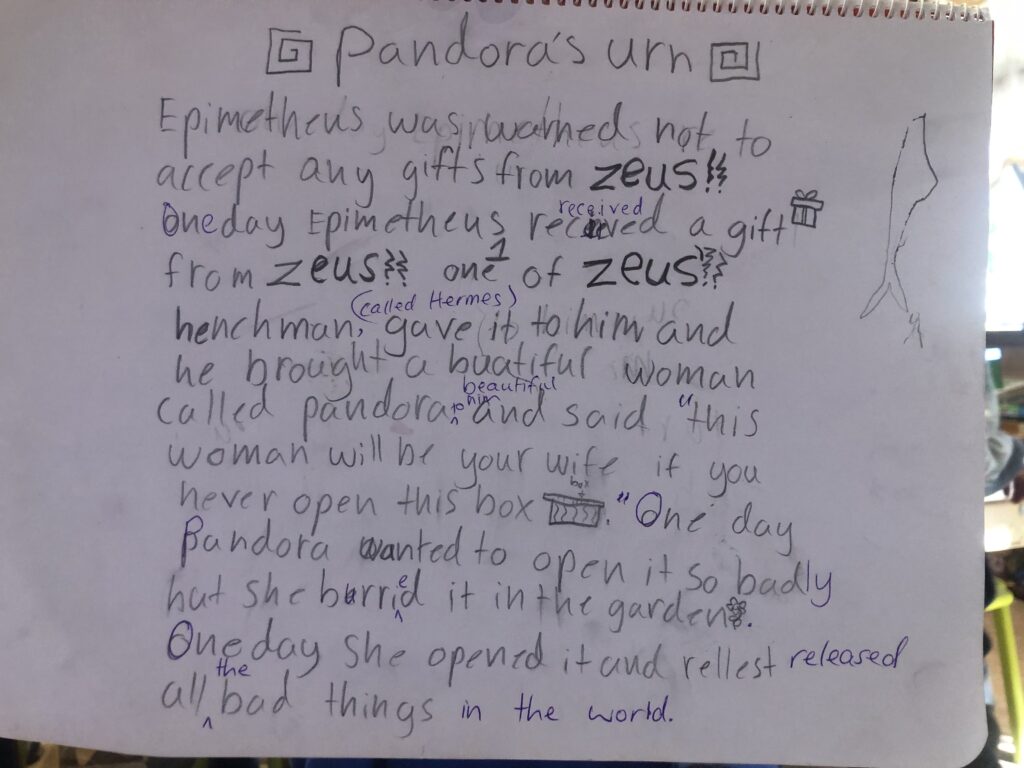 Pandora's urn
Epimetheus was warned not to
accept any gifts from zeus
One day Epimetheus received a gift
from zeus one 1 of zeus
henchman, (called Hermes) gave it to him and
he brought a buatiful beautiful woman
called pandora, to him and said "this
woman will be your wife if you
never open this box box." One day
Pandora wanted to open it so badly
but she burried it in the garden.
One day she opened it and rellest released
all the bad things in the world.